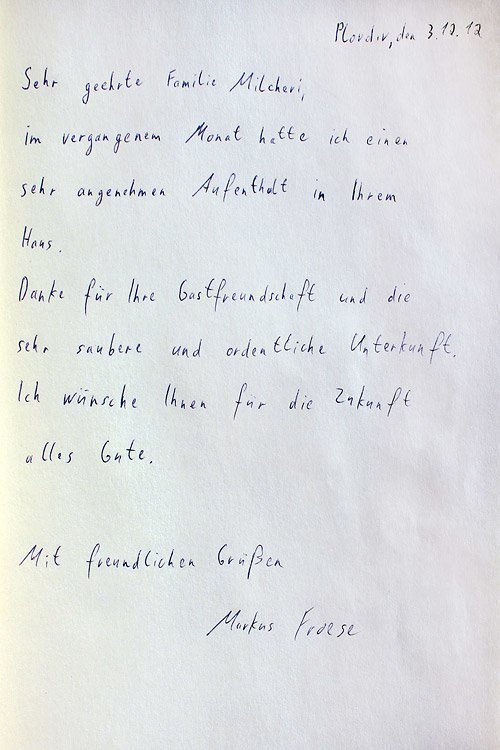 Plovdiv, den 3.10.12
Sehr geehrte Familie Milcheri,
im vergangenem Monat hatte ich einen
sehr angenehmen Aufenthalt in Ihrem
Haus.
Danke für Ihre Gastfreundschaft und die
sehr saubere und ordentliche Unterkunft.
Ich wünsche Ihnen für die Zukunft
alles Gute.
Mit freundlichen Grüßen
Markus Froese